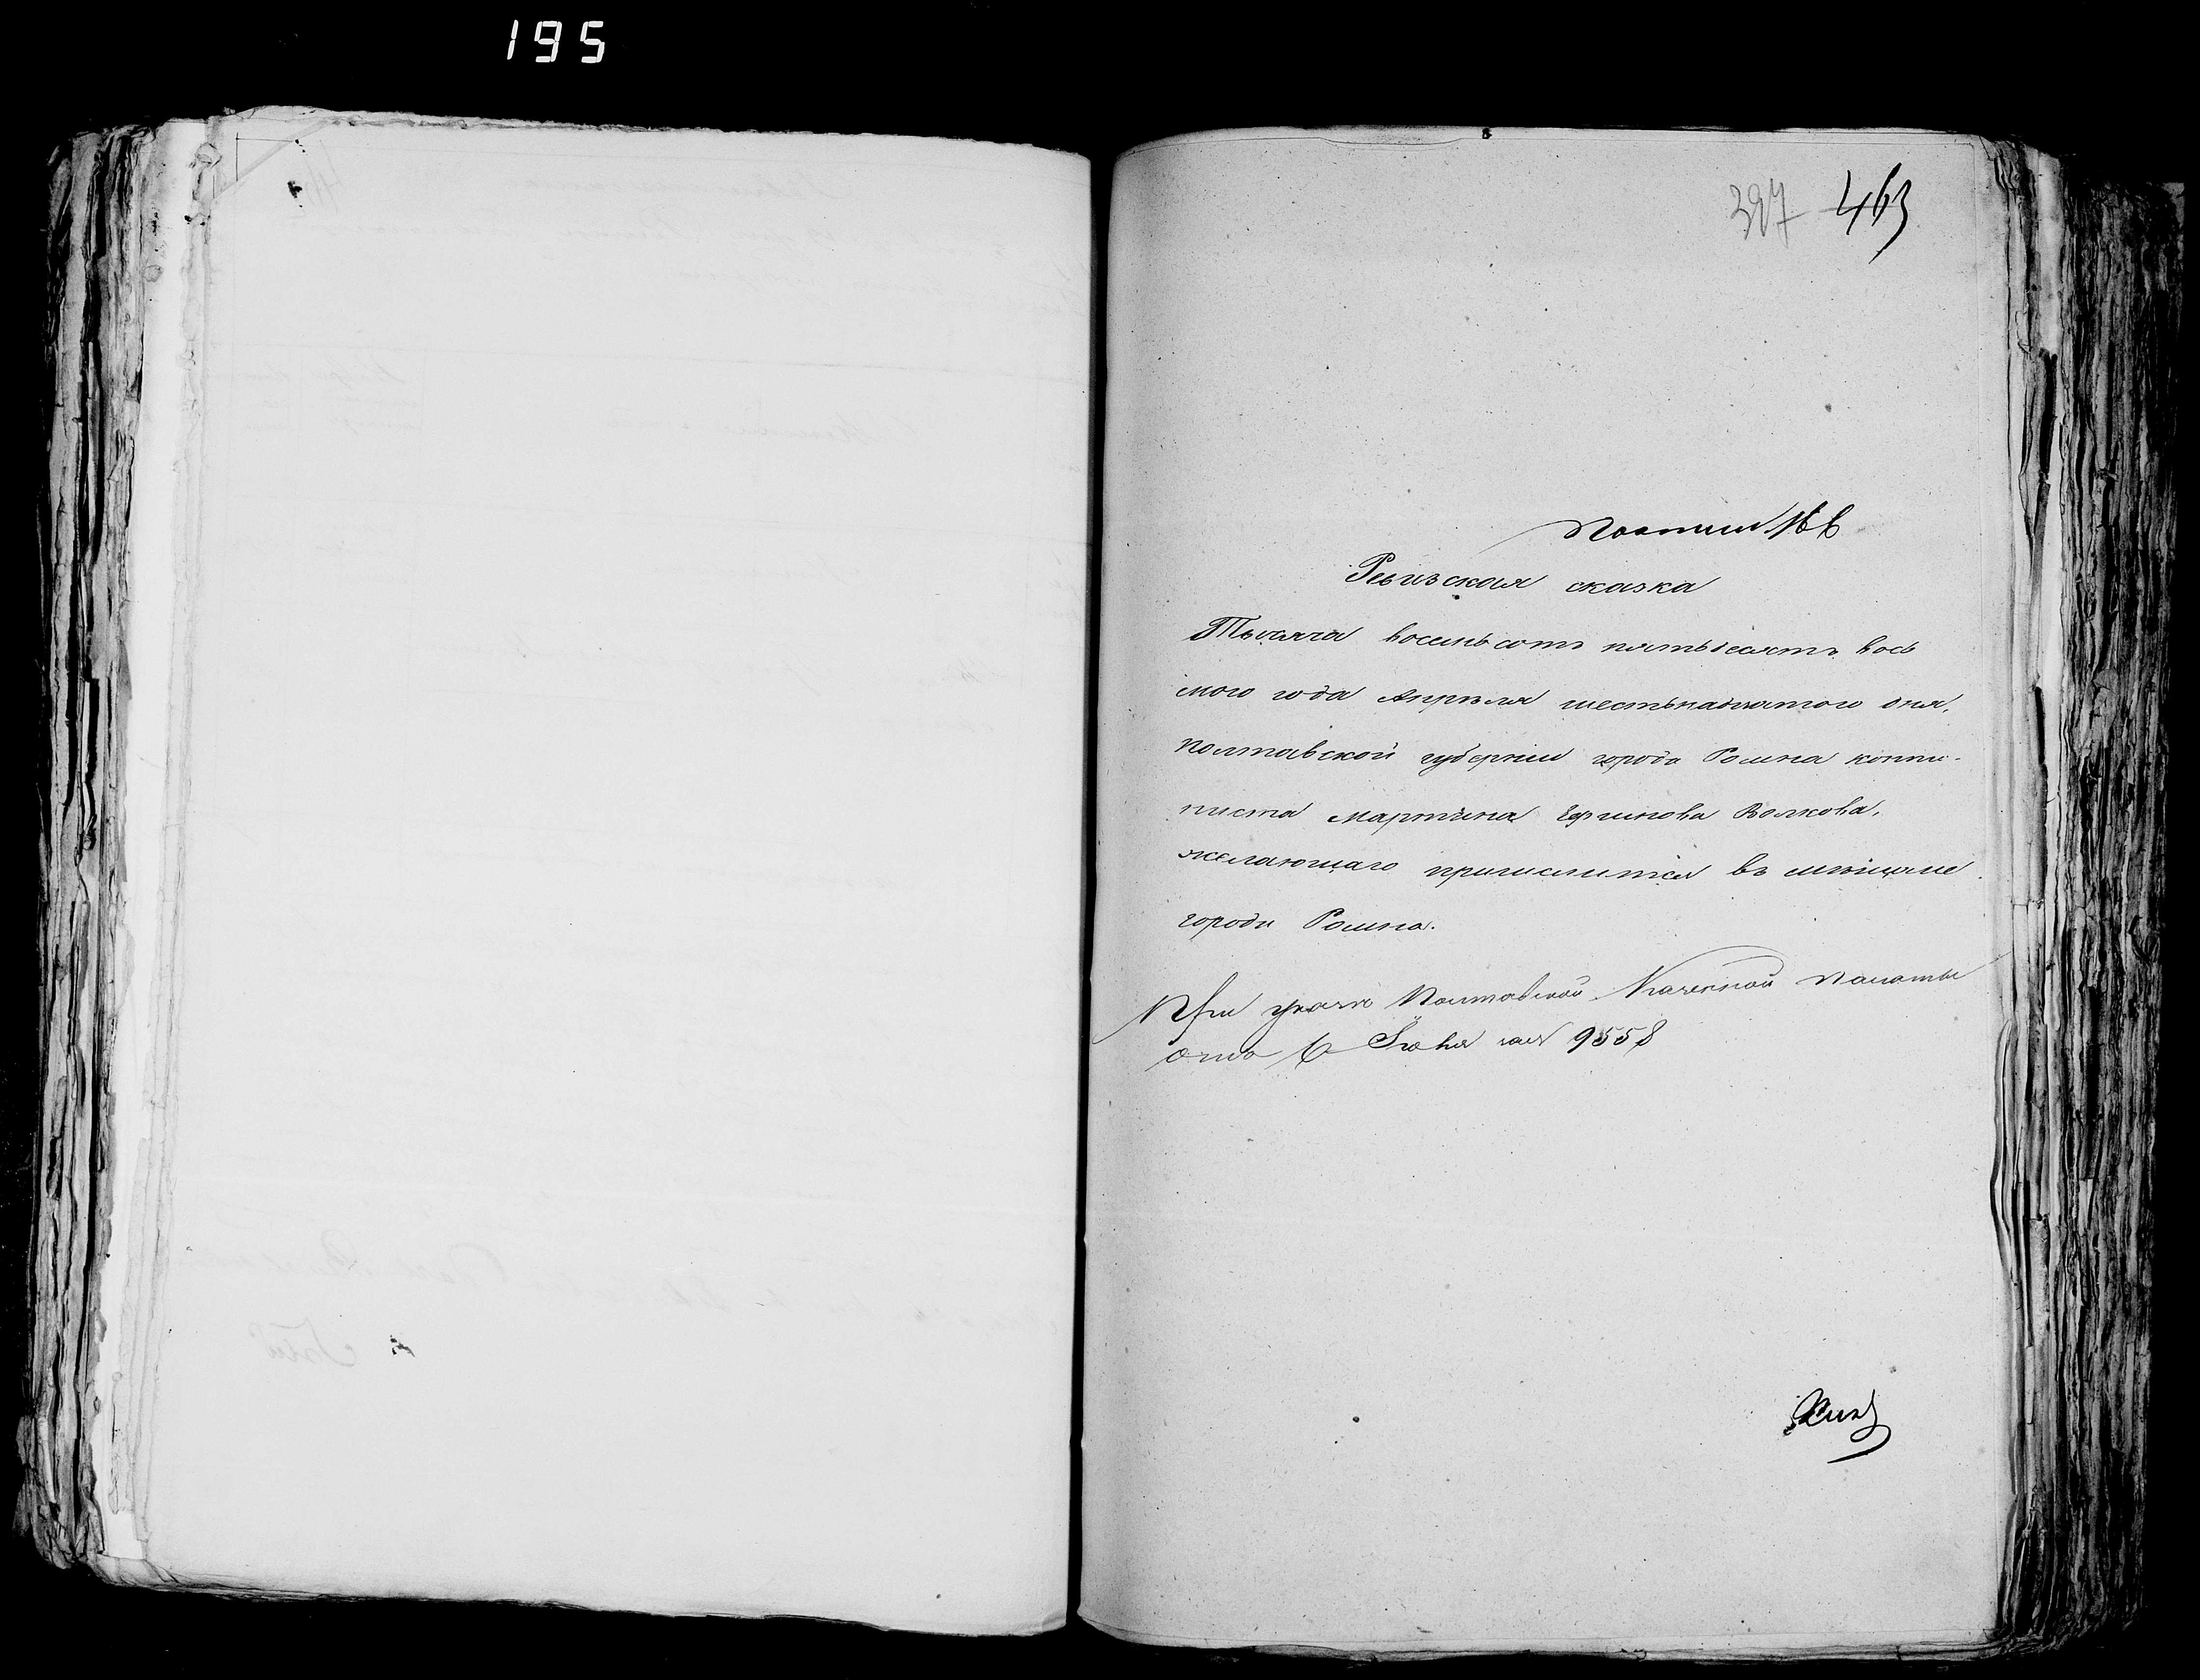 195
397 463
Ревизская сказка
Тысяча восемьсотъ пятьдесятъ вось
мого года Апрѣля шестьнадцатого дня,
Полтавской губерніи города Ромна копіи-
писта Мартина Волкова,
желающаго причислится въ мѣщане
города Ромна.
При указѣ Полтавской Казенной Палаты
отъ 6 9558